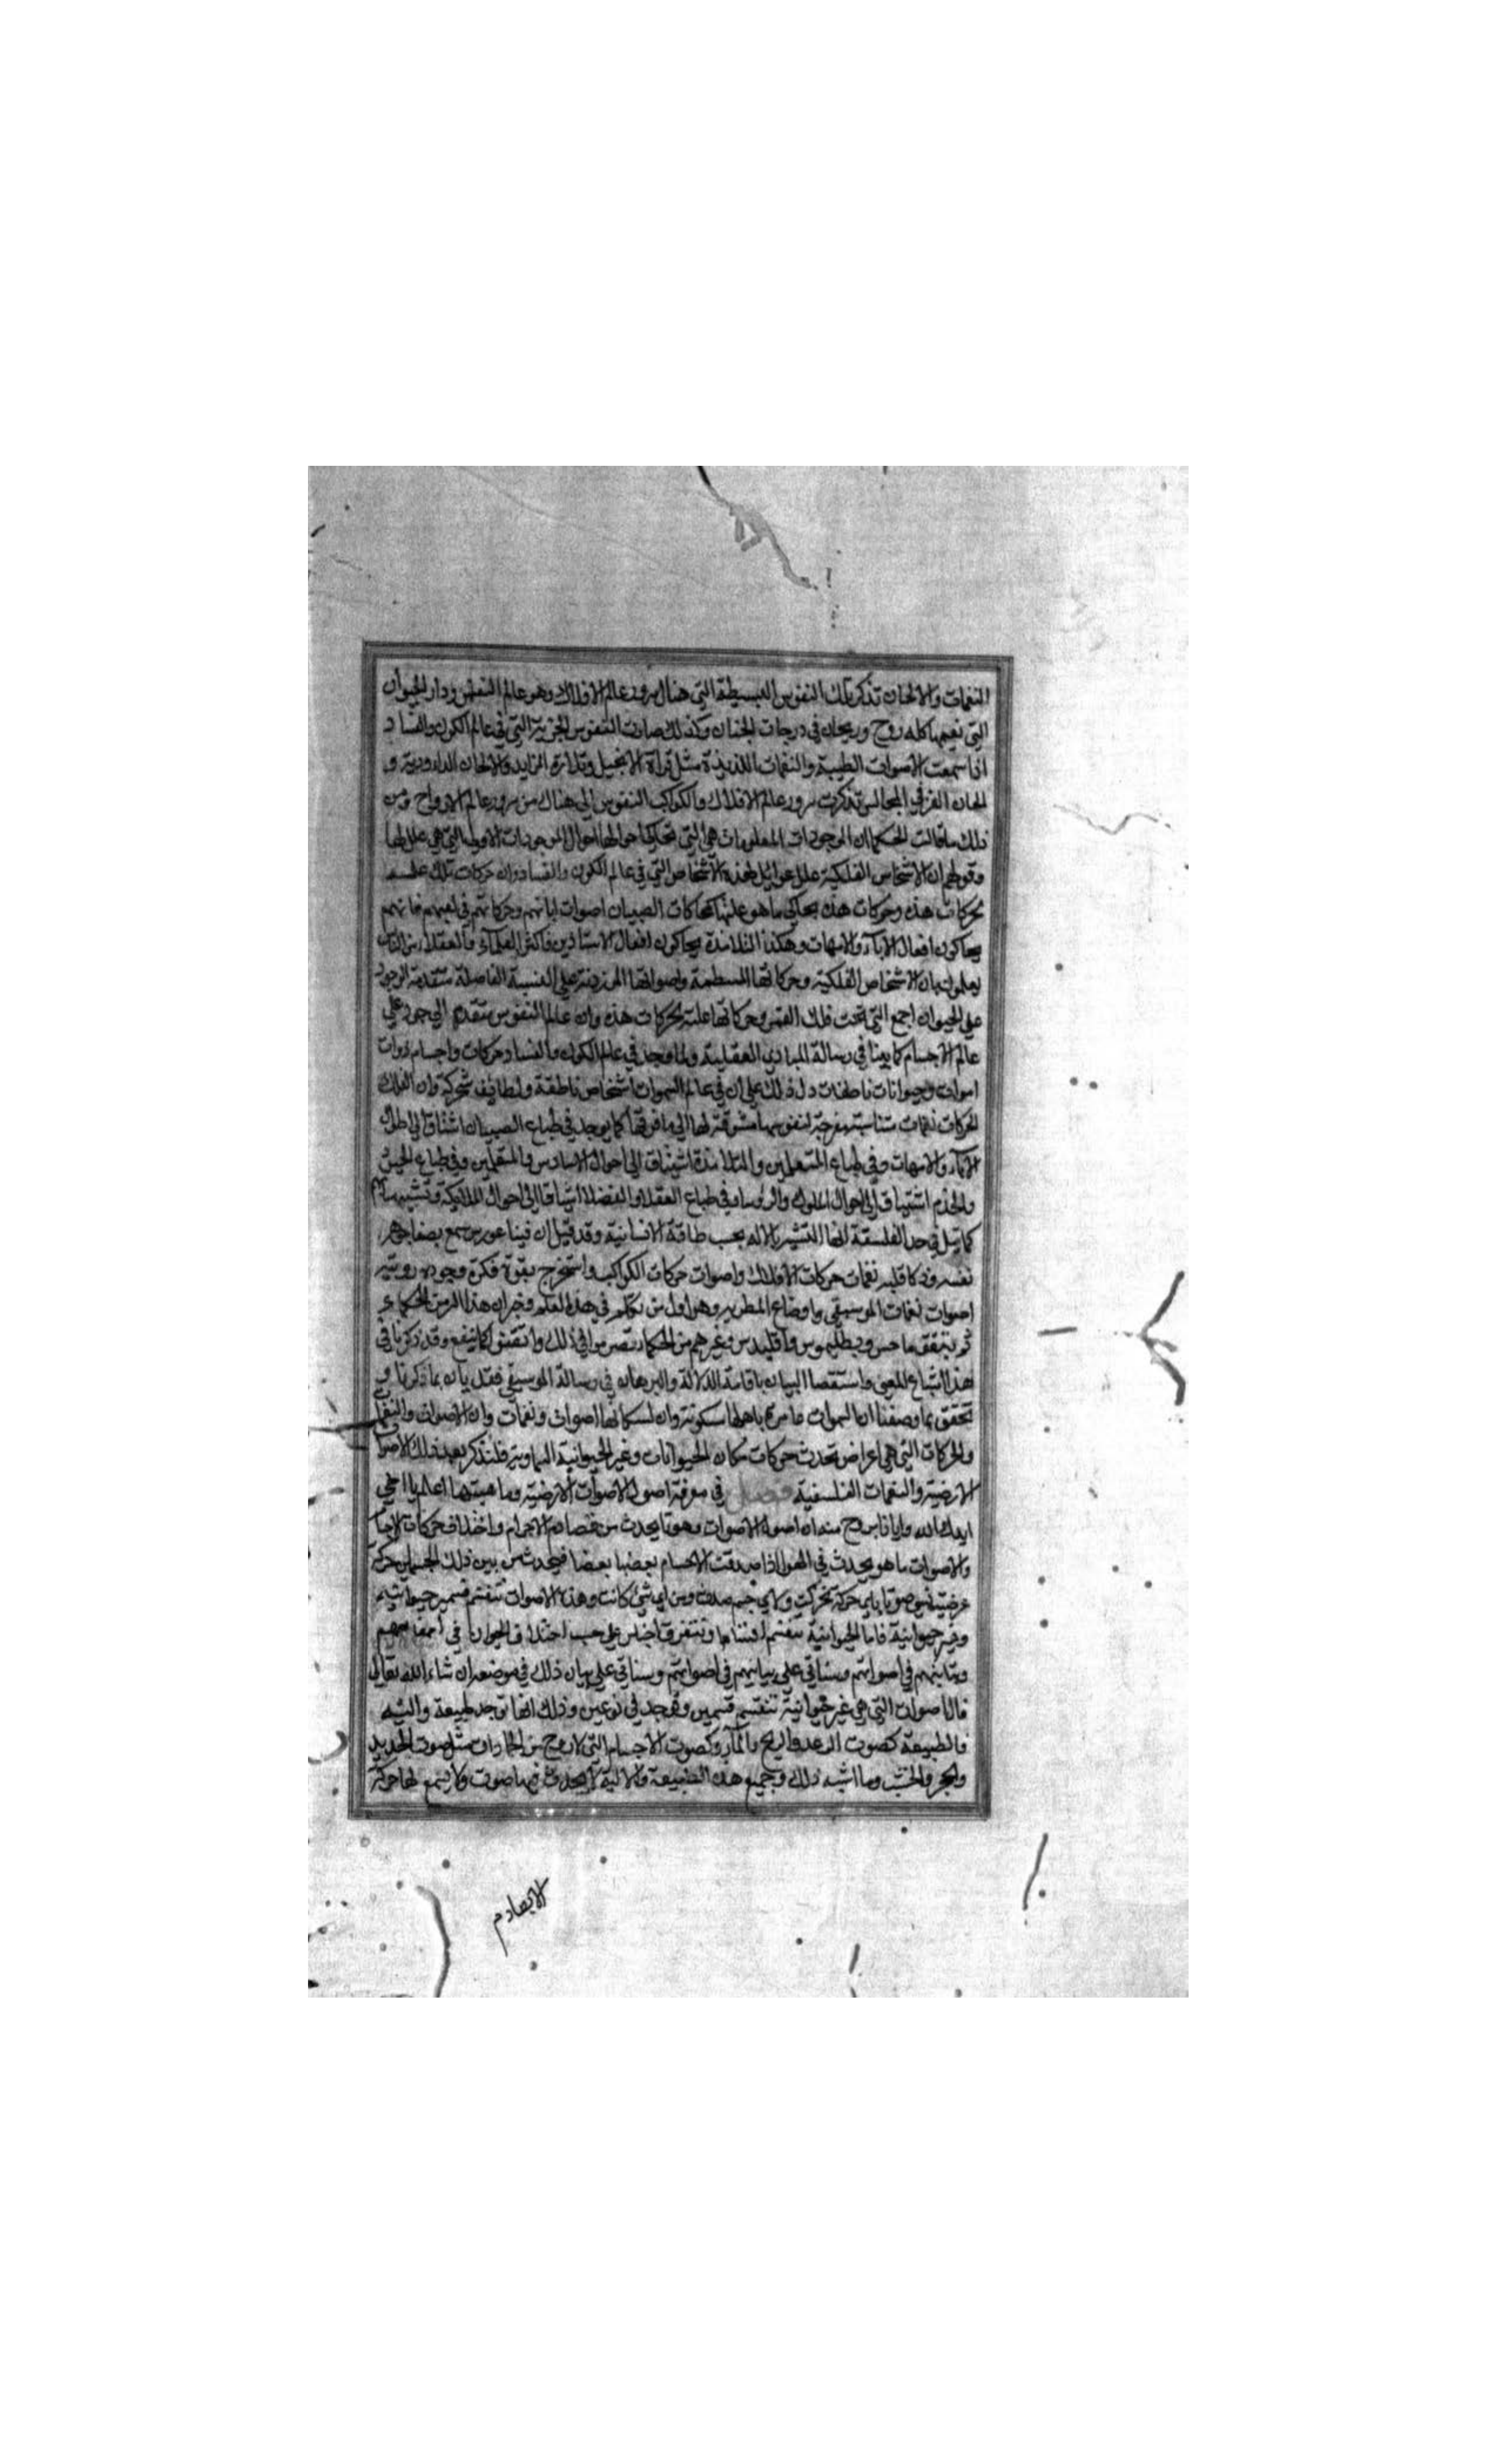 النغمات والالحان تذكر تلك النفوس البسيطة التي هناك سرور عالم الافلاك وهو عالم النفس ودار الحيوان
التي نعيمها كله روح وريحان في درجات الجنان وكذلك صارت النفوس الجزئية التي في عالم الكون والفساد
اذا سمعت الاصوات الطيبة والنغمات اللذيذة مثل قراة الانجيل وتلاوة المزامير والالحان الداودية و
الحان القرا في المجالس تذكرت سرور عالم الافلاك والكواكب النفوس الى هناك من سرور عالم الارواح ومن
ذلك ما قالت الحكما ان الموجودات المعلومات هي التي تحاكي احوالها احوال الموجودات الاولى التي هي علل لها
وقولهم ان الاشخاص الفلكية علل لهذه الاشخاص التي في عالم الكون والفساد وان حركات تلك علة
لحركات هذه وحركات هذه يحاكي ما هو علتها كمحاكات الصبيان اصوات ابائهم وحركاتهم في لعبهم فانهم
يحاكون افعال الاباء والامهات وهكذا التلامذة يحاكون افعال الاستاذين واكثر العلماء والعقلاء من الناس
يعلمون بان الاشخاص الفلكية وحركاتها المنتظمة واصواتها الموزونة على النسبة الفاضلة متقدمة الوجود
على الحيوان اجمع التي تحت فلك القمر وحركاتها علة لحركات هذه وان عالم النفوس متقدم الوجود على
عالم الاجسام كما بينا في رسالة المبادي العقلية ولما وجد في عالم الكون والفساد حركات واجسام ذوات
اصوات وحيوانات ناطقات دل ذلك على ان في عالم السموات اشخاص ناطقة ولطايف متحركة وان لتلك
الحركات نغمات متناسبة مفرحة لنفوسها مشوقة لها الى ما فوقها كما يوجد في طباع الصبيان اشتياق الى احوال
الاباء والامهات وفي طباع المتعلمين والتلامذة اشتياق الى احوال الاستاذين والمتعلمين وفي طباع الجيش
والخدم اشتياق الى احوال الملوك والرؤسا وفي طباع العقلا والفضلا اشتياق الى احوال الملائكة وتشبيه بهم
كما قيل في حد الفلسفة انها التشبه بالاله بحسب طاقة الانسانية وقد قيل ان فيثاغورس سمع بصفا جوهر
نفسه وذكا قلبه نغمات حركات الافلاك واصوات حركات الكواكب واستخرج بقوة فكرة وجودة روية
اصوات نغمات الموسيقي واوضاع المطربه وهو اول من تكلم في هذا العلم وخبر ان هذا السر من الحكما
ثم نيقوماخس وبطليموس واقليدس وغيرهم من الحكماء وقد ذكرنا في
هذا اشباع المعنى واستقصا البيان باقامة الدلالة والبرهان في رسالة الموسيقي فقد بان بما ذكرنا و
تحقق بما وصفنا ان السموات عامرة باهلها مسكونة وان لسكانها اصوات ونغمات وان الاصوات والنغمات
والحركات التي هي اعراض تحدث حركات سكان الحيوانات وغير الحيوانية السماوية فلنذكر بعد ذلك الاصوات
الارضية والنغمات الفلسفية فصل في معرفة اصول الاصوات الارضية وماهيتها اعلم يا اخي
ايدك الله وايانا بروح منه ان اصول الاصوات وهو ما يحدث من تصادم الاجرام واختلاف حركات الاجسام
والاصوات ما هو يحدث في الهوا اذا صدفت الاجسام بعضها بعضا فيحدث من بين ذلك الجسمين حركة
عرضية تسمى صوتا باي حركة تحركت ولاي جسم صدمت ومن اي شيئ كانت وهذه الاصوات تنقسم قسمين حيوانية
وغير حيوانية فاما الحيوانية تنقسم اقساما وتتفرق اجناس على حسب اختلاف الحيوان في اجناسهم
وتباينهم في اصواتهم وسناتي على بيان ذلك في موضعه ان شاء الله تعالى
فالاصوات التي هي غير حيوانية تنقسم قسمين ويوجد في نوعين وذلك انها توجد طبيعة والية
فالطبيعة كصوت الرعد والريح والماء وكصوت الاجسام التي لا روح من الجمادات مثل صوت الحديد
والحجر والخشب وما اشبه ذلك وجميع هذه الطبيعة والالية لا يحدث فيها صوت ولا يسمع لها حركة
الا بتصادم